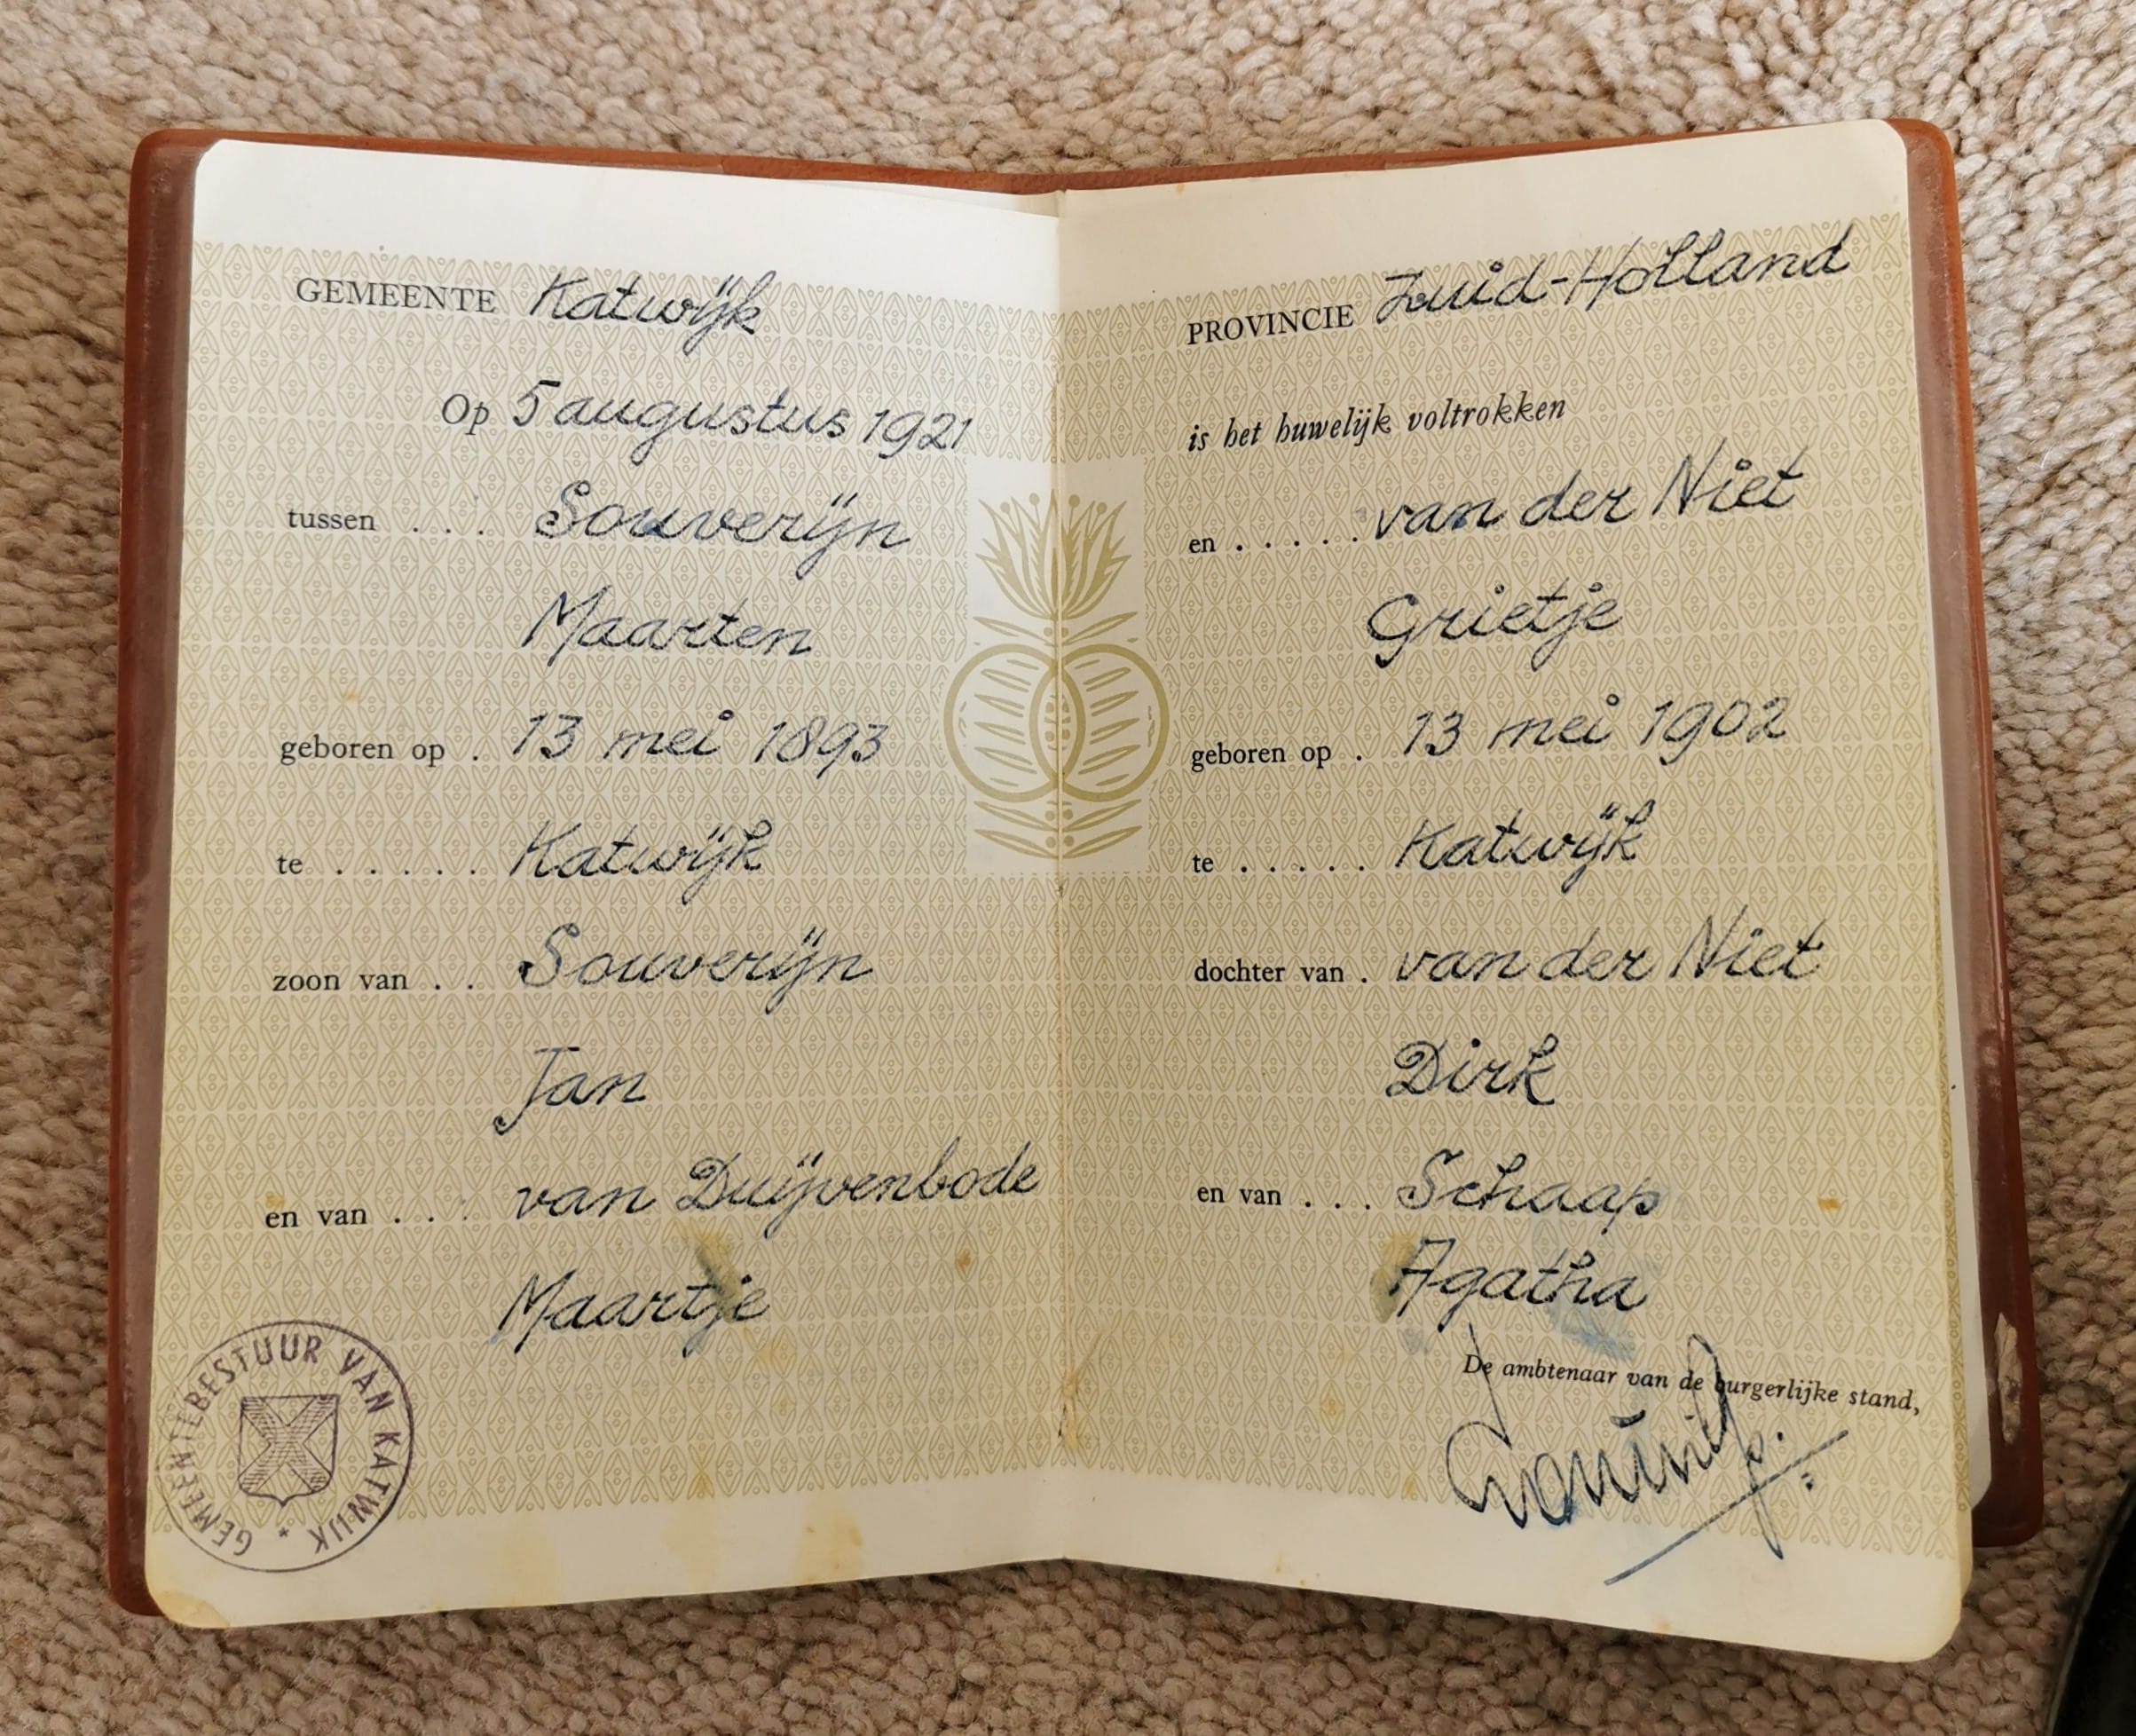 GEMEENTE Katwijk
Op 5 augustus 1921
tussen . . . Souverijn
Maarten
geboren op . 13 mei 1893
te . . . . . Katwijk
zoon van . . Souverijn
Jan
en van . . . van Duijvenbode
Maartje
GEMEENTEBESTUUR VAN KATWIJK *
PROVINCIE Zuid-Holland
is het huwelijk voltrokken
en . . . . . van der Niet
Grietje
geboren op . 13 mei 1902
te . . . . . Katwijk
dochter van . van der Niet
Dirk
en van . . . Schaap
Agatha
De ambtenaar van de burgerlijke stand,